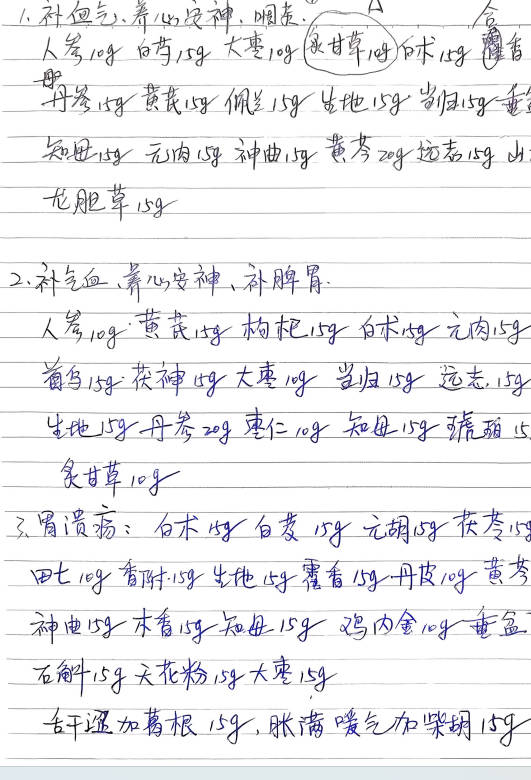 1. 补血气、养心安神、咽炎.
人参10g 白芍15g 大枣10g 炙甘草10g 白术15g 霍香
丹参15g 黄芪15g 佩兰15g 生地15g 当归15g 垂
知母15g 元肉15g 神曲15g 黄芩20g 远志15g 山
龙胆草15g
2. 补气血、养心安神、补脾胃.
人参10g 黄芪15g 枸杞15g 白术15g 元肉15g
首乌15g 茯神15g 大枣10g 当归15g 远志.15g
生地15g 丹参20g 枣仁10g 知母15g 琥珀15
炙甘草10g
3. 胃溃疡: 白术15g 白芨15g 元胡15g 茯苓15g
田七10g 香附.15g 生地15g 霍香15g 丹皮10g 黄芩
神曲15g 木香15g 知母15g 鸡内金10g 垂盆
石斛15g 天花粉15g 大枣15g
舌干 加葛根15g, 胀满嗳气加柴胡15g